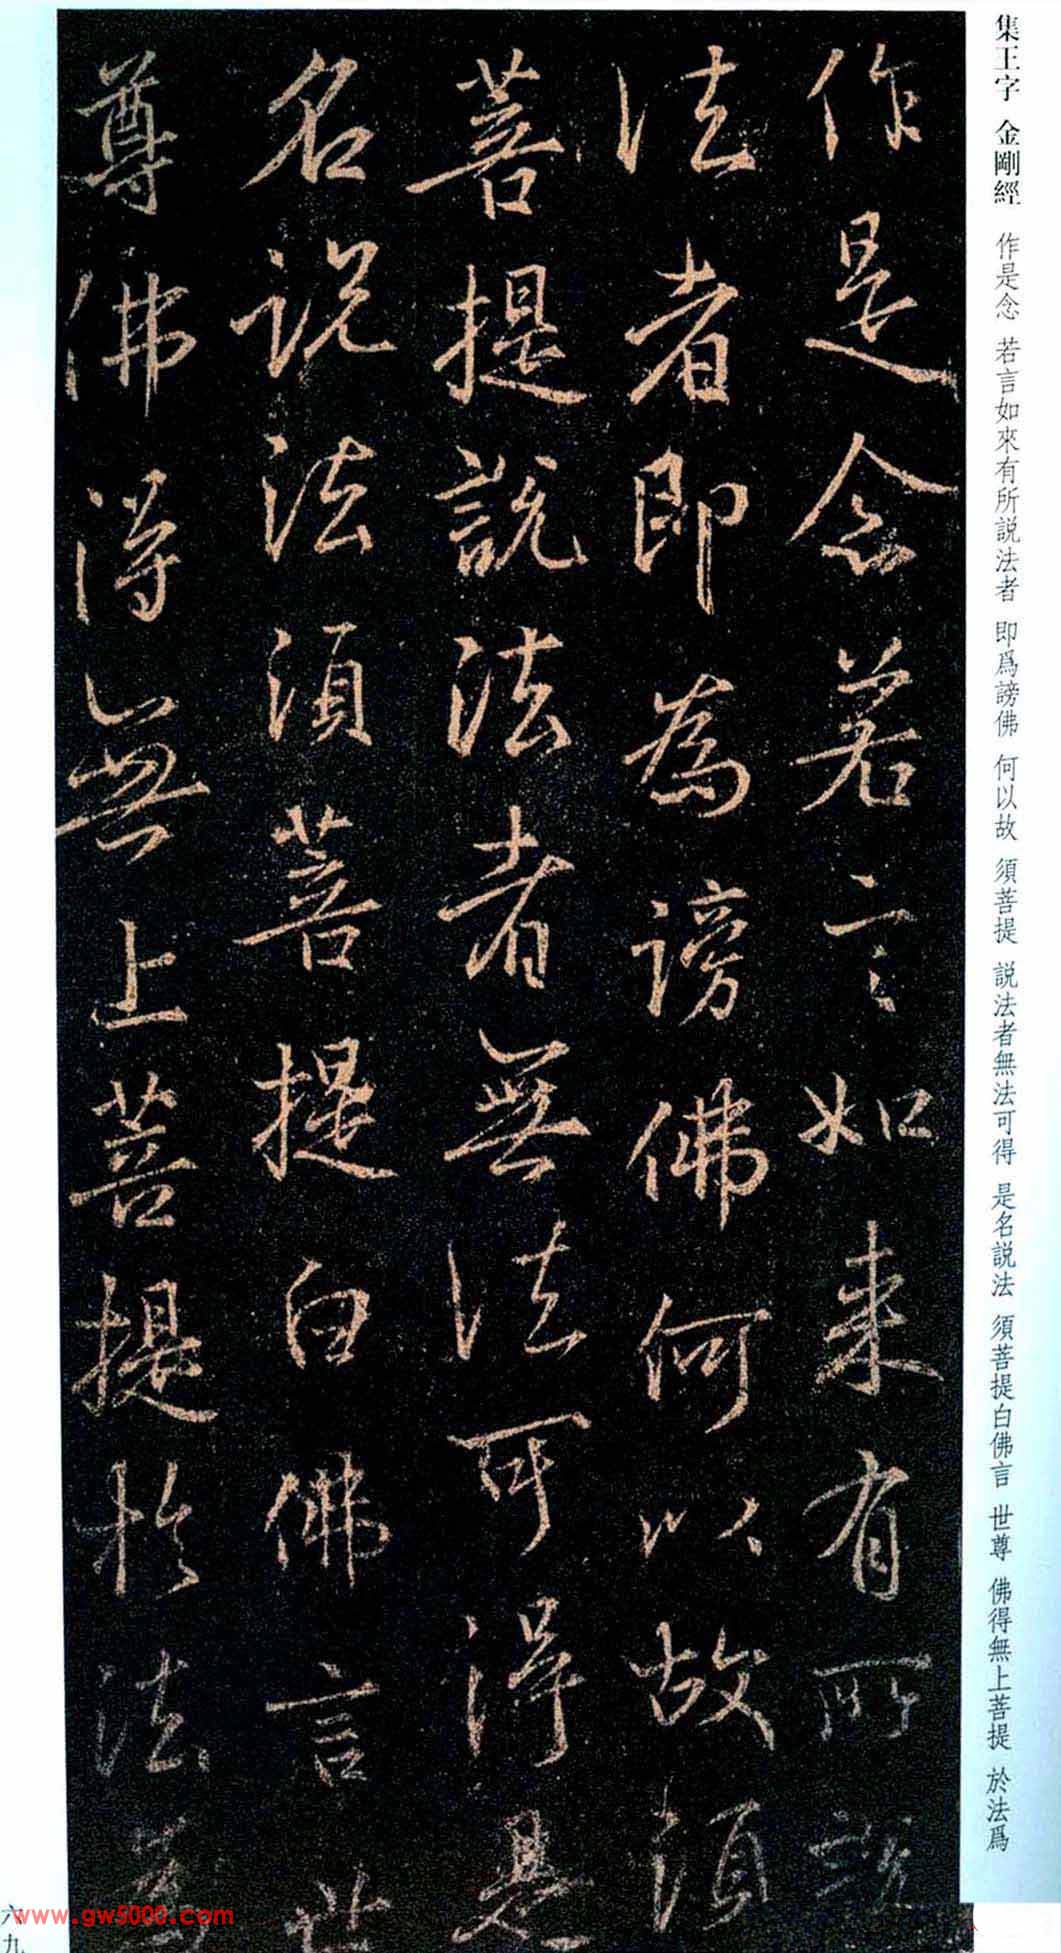 集王字 金剛經 作是念 若言如來有所説法者 即爲謗佛 何以故 須菩提 説法者無法可得 是名説法 須菩提白佛言 世尊 佛得無上菩提 於法爲
作是念若言如来有所説
法者即為謗佛何以故須
菩提説法者無法可得是
名説法須菩提白佛言世
尊佛得無上菩提於法為
六九
www.gw5000.com